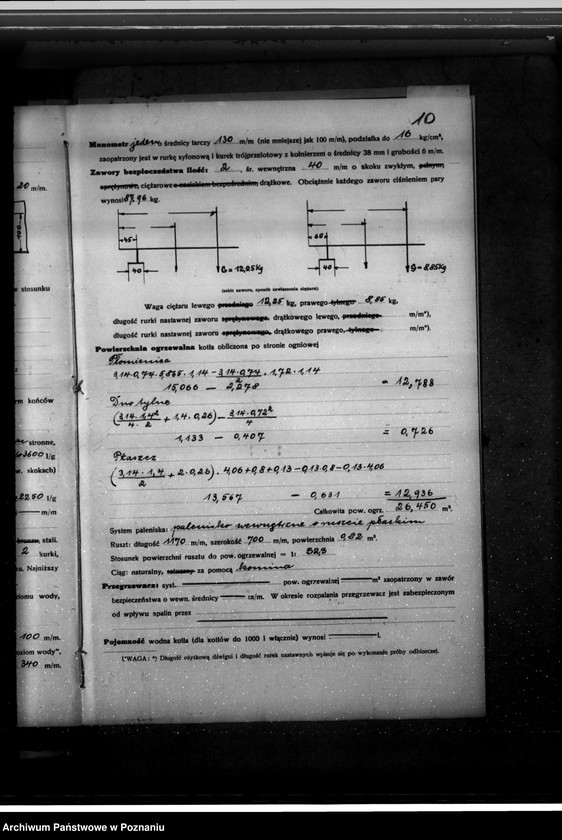 10
Manometr jeden średnicy tarczy 130 m/m (nie mniejszej jak 100 m/m), podziałka do 16 kg/cm²,
zaopatrzony jest w rurkę syfonową i kurek trójprzelotowy z kołnierzem o średnicy 38 mm i grubości 6 m/m.
Zawory bezpieczeństwa ilość: 2, śr. wewnętrzna 40 m/m o skoku zwykłym, pełnym,
sprężynowe, ciężarowe o naciskiem bezpośrednim, drążkowe. Obciążenie każdego zaworu ciśnieniem pary
wynosi 87,96 kg.
45
40
G = 12,25 Kg
60
40
G = 8,85 Kg
(szkic zaworu, sposób zawieszenia ciężaru).
Waga ciężaru lewego przedniego 12,25 kg, prawego tylnego 8,85 kg,
długość rurki nastawnej zaworu sprężynowego, drążkowego lewego, przedniego m/m*),
długość rurki nastawnej zaworu sprężynowego, drążkowego prawego, tylnego m/m*).
Powierzchnia ogrzewalna kotła obliczona po stronie ogniowej
Płomienica
3,14·0,74·5,865·1,14 - 3,14·0,74/2 · 1,72·1,14
15,066 — 2,278 = 12,788
Dno tylne
(3,14·1,4²/4·2 + 1,4·0,26) - 3,14·0,72²/4
1,133 - 0,407 = 0,726
Płaszcz
(3,14·1,4/2 + 2·0,26) · 4,06+0,8+0,13-0,13·0,8-0,13·4,06
13,567 - 0,631 = 12,936
Całkowita pow. ogrz. 26,450 m².
System paleniska: palenisko wewnętrzne o ruszcie płaskim
Ruszt: długość 1170 m/m, szerokość 700 m/m, powierzchnia 0,82 m².
Stosunek powierzchni rusztu do pow. ogrzewalnej = 1: 32,3
Ciąg: naturalny, sztuczny za pomocą komina
Przegrzewacz: syst. pow. ogrzewalnej m² zaopatrzony w zawór
bezpieczeństwa o wewn. średnicy m/m. W okresie rozpalania przegrzewacz jest zabezpieczonym
od wpływu spalin przez
Pojemność wodna kotła (dla kotłów do 1000 l włącznie) wynosi l.
UWAGA: *) Długość użytkową dźwigni i długość rurek nastawnych wpisuje się po wykonaniu próby odbiorczej.
20 m/m.
100
w stosunku
m końców
stronne,
3600 l/g
w. skokach)
2250 l/g
m/m
stali.
2 kurki,
Najniższy
ziomu wody,
100 m/m.
oziom wody".
340 m/m.
Archiwum Państwowe w Poznaniu